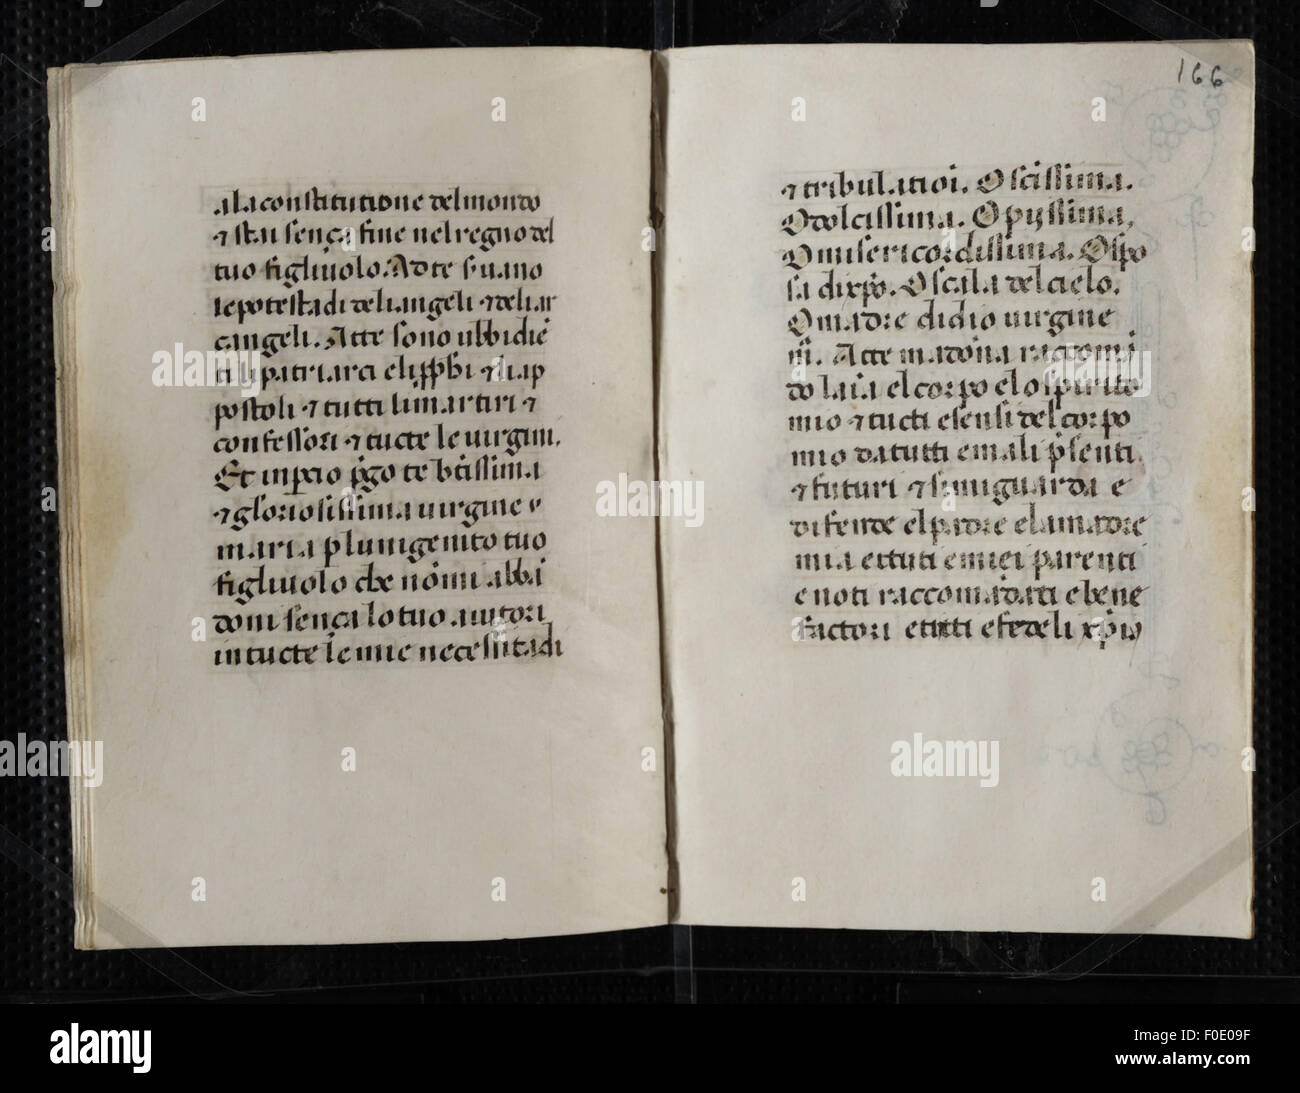 ala constitutione del mondo
⁊ stai sença fine nel regno del
tuo figliuolo. Ad te stiano
le potestadi deli angeli ⁊ deli ar
cangeli. Atte sono ubbidiē
ti li patriarci eli ꝓphi ⁊ li ap
postoli ⁊ tutti li martiri ⁊
confessori ⁊ tucte le uirgini.
Et inꝑcio p̄go te btissima
⁊ gloriosissima uirgine
maria p̱ lunigenito tuo
figliuolo che nōmi abbā
doni sença lo tuo aiutori
in tucte le mie necessitadi
166
⁊ tribulatioi. O scissima.
O dolcissima. O pyssima.
O misericordissima. O spo
sa di xp̄o. O scala del cielo.
O madre didio uirgine
m̄. Atte madōna raccomā
do laīa el corpo elo spirito
mio ⁊ tucti e sensi del corpo
mio da tutti e mali p̄senti
⁊ futuri ⁊ simiguarda e
difende el padre ela madre
mia et tuti e miei parenti
e noti raccomādati e bene
factori e tutti e fedeli xp̄iā
alamy stock photo
alamy
www.alamy.com
Image ID: F0E09F